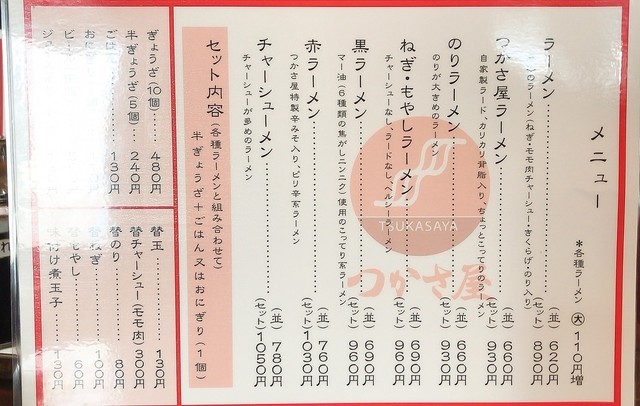 メニュー
*各種ラーメン 大 110円増
ラーメン
のラーメン(ねぎ・モモ肉チャーシュー・きくらげ・のり入り)
(並) 620円
(セット) 890円
つかさ屋ラーメン
自家製ラード、カリカリ背脂入り、ちょっとこってりのラーメン
(並) 660円
(セット) 930円
のりラーメン
のりが大きめのラーメン
(並) 660円
(セット) 930円
ねぎ・もやしラーメン
チャーシューなし、ラードなし、ヘルシーラーメン
(並) 690円
(セット) 960円
黒ラーメン
マー油(6種類の焦がしニンニク)使用のこってり系ラーメン
(並) 690円
(セット) 960円
赤ラーメン
つかさ屋特製辛みそ入り、ピリ辛系ラーメン
(並) 760円
(セット) 1030円
チャーシューメン
チャーシューが多めのラーメン
(並) 780円
(セット) 1050円
セット内容(各種ラーメンと組み合わせて)
半ぎょうざ+ごはん又はおにぎり(1個)
TSUKASAYA
つかさ屋
ぎょうざ(10個) 480円
半ぎょうざ(5個) 240円
ごは 130円
おに
ビー
ジ
替玉 130円
替チャーシュー(モモ肉) 300円
替のり 80円
替ねぎ 100円
替もやし 60円
味付け煮玉子 130円